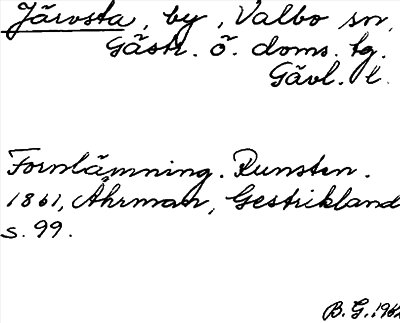 Järvsta, by, Valbo sn,
Gästr. ö. doms. tg.
Gävl. l.
Fornlämning. Runsten.
1861, Åhrman, Gestrikland
s. 99.
B. G. 1962